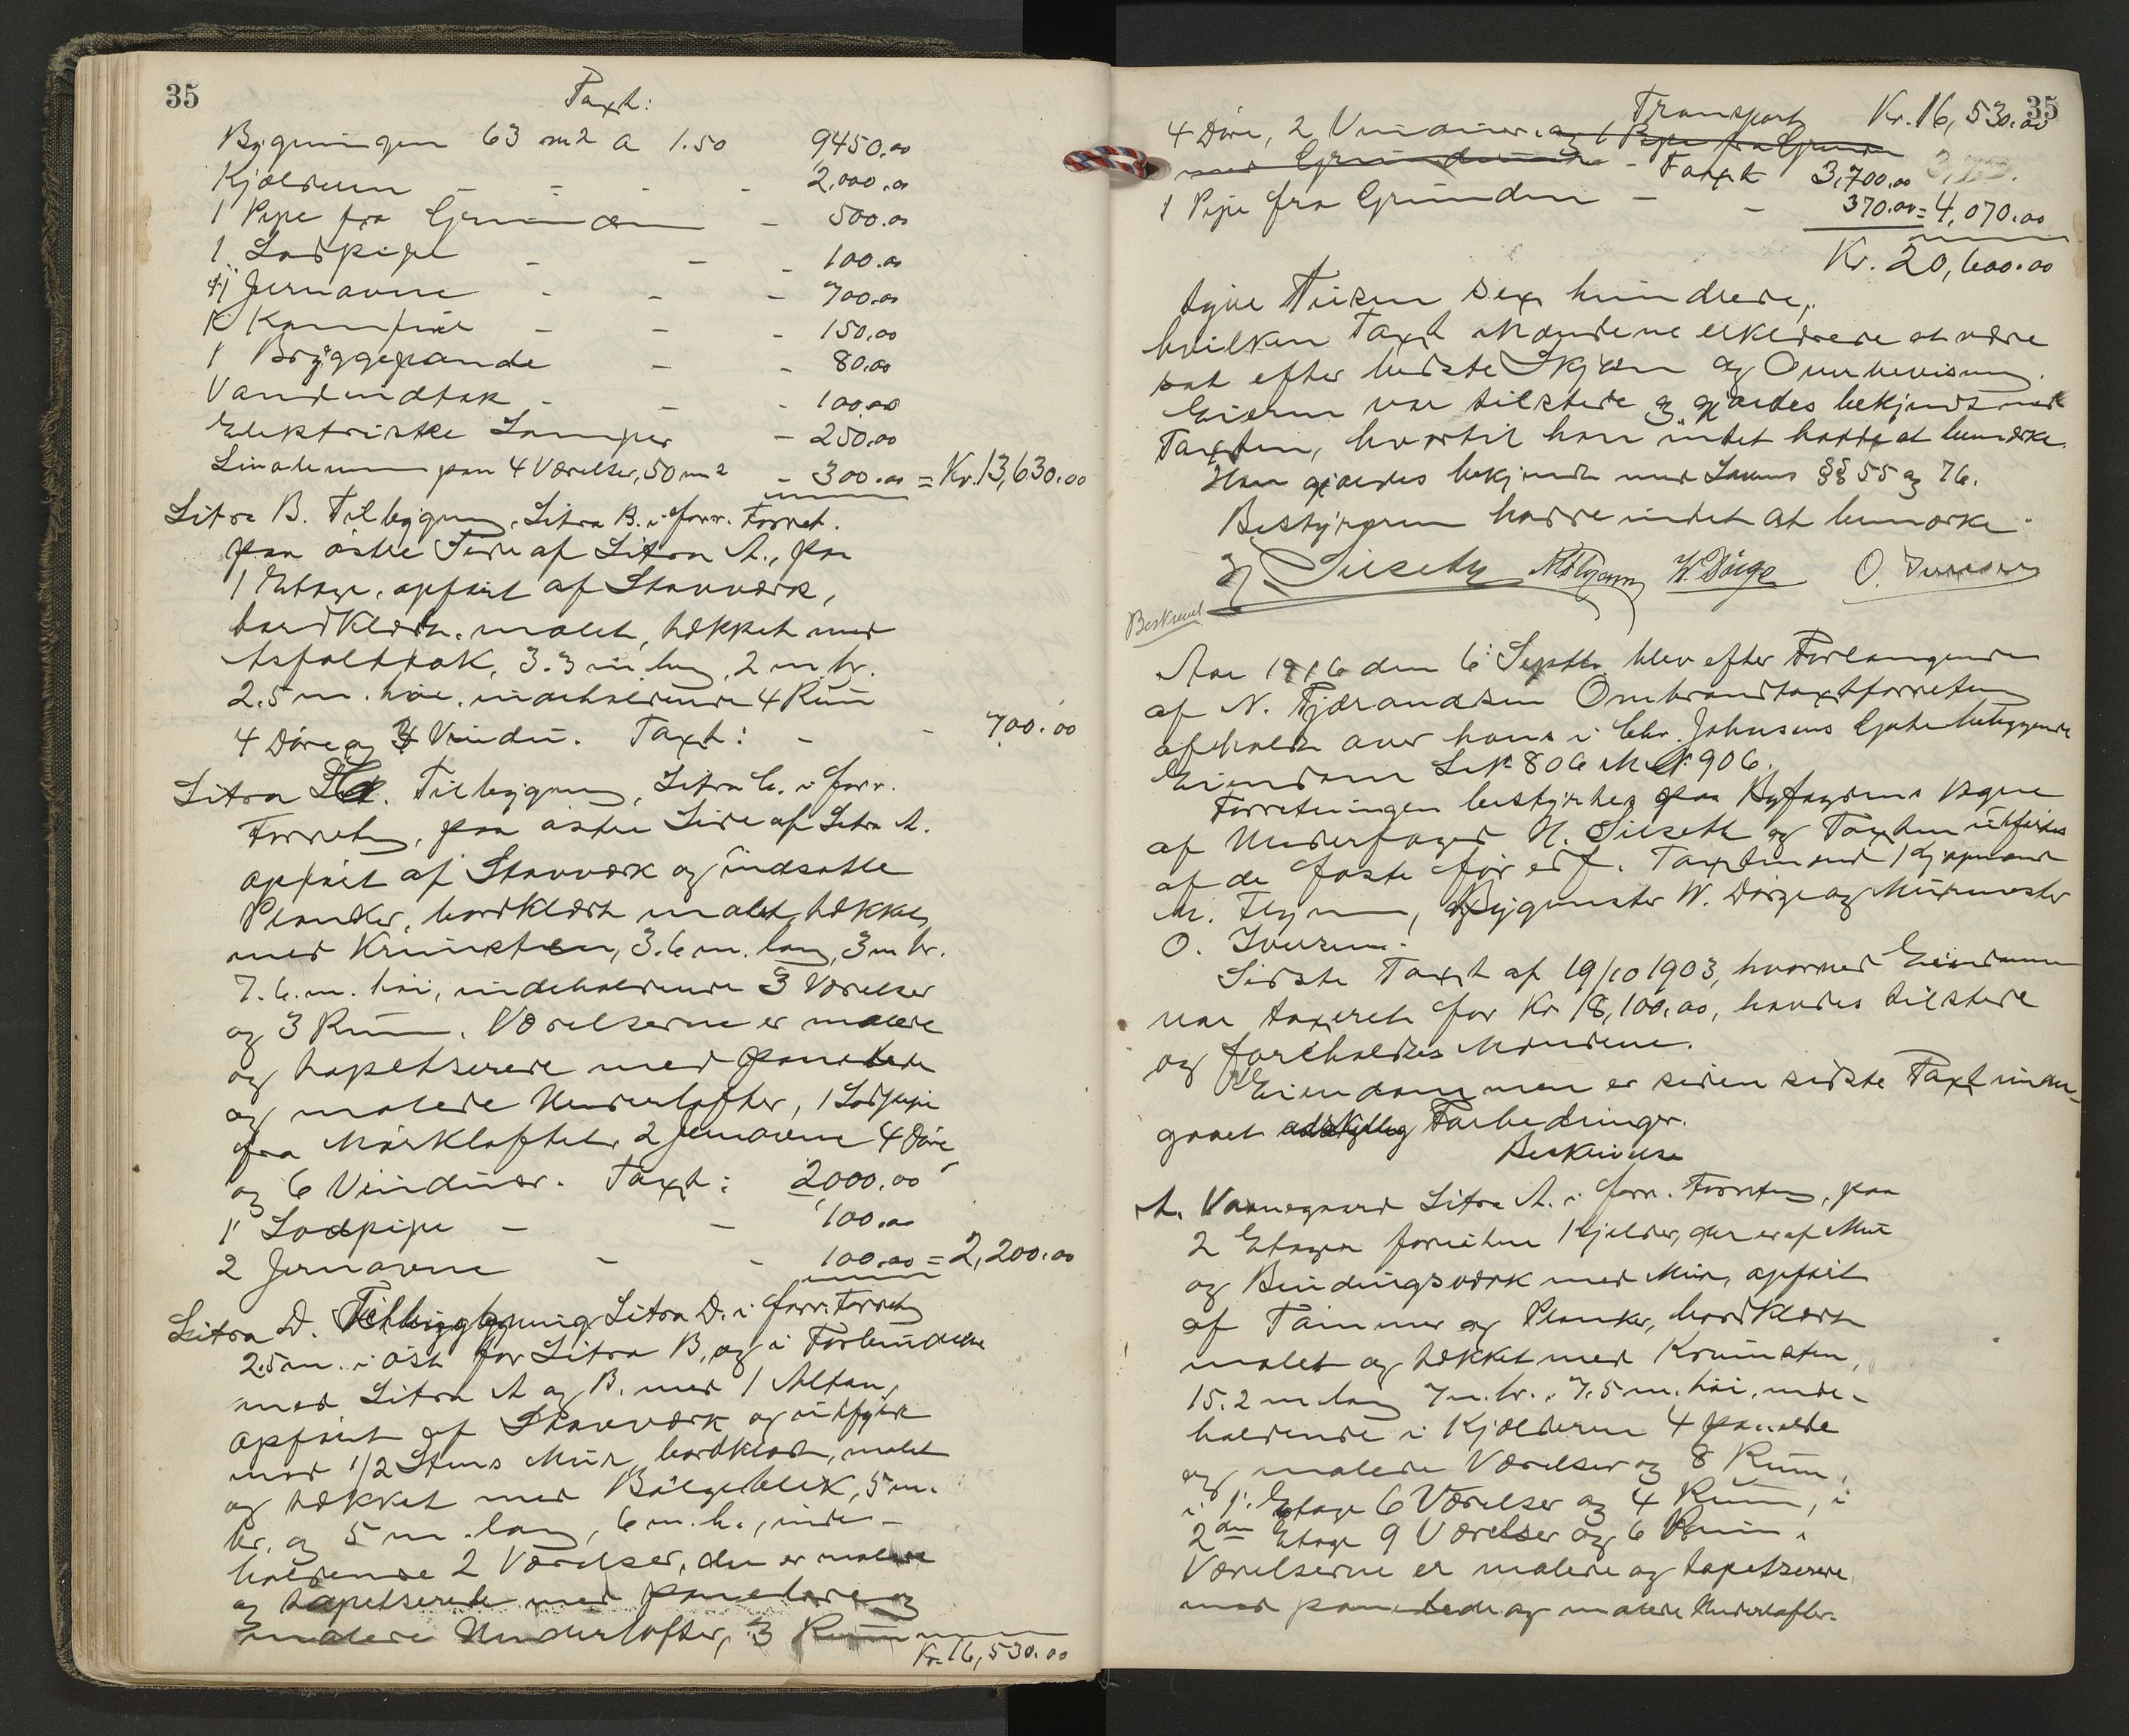 35
Taxt:
Bygningen 63 m2 a 1.50 9450.00
Kjælderen - - - - 2,000.00
1 Pipe fra Grunden - 500.00
1 Lodpipe - - - 100.00
Jernovne - - - 700.00
Komfur - - - 150.00
1 Bryggepande - - 80.00
Vandindtak - - - 100.00
Elektriske Lamper - 250.00
Linoleum paa 4 Værelser, 50 m2 - 300.00 = Kr. 13,630.00
Litra B. Tilbygning, Litra B. i forr. Forret.
paa østre Side af Litra A., paa
1 Etage, opført af Stavværk,
bordklædt, malet, tækket med
Asfaltpak, 3.3 m lang, 2 m. br.
2.5 m. høi, indeholdende 4 Rum
4 Døre og Vindu. Taxt: - - 700.00
Litra Tilbygning, Litra C. i forr.
Forretn, paa østre Side af Litra A.
opført af Stavværk og indsatte
Planker, bordklædt malet, tækket
med Krumsten, 3.6 m. lang, 3 m br.
7.6. m. høi, indeholdende 3 Værelser
og 3 Rum. Værelserne er malede
og tapetserede med panelede
og malede Underlofter, 1 Lodpipe
fra Mørkloftet, 2 Jernovne 4 Døre
og 6 Vinduer. Taxt: 2000.00
1 Lodpipe - - 100.00
2 Jernovne - - 100.00 = 2,200.00
Litra D. Tilbygning Litra D. i forr. Forretn
2.5 m. i øst for Litra B, og i Forbindelse
med Litra A og B. med 1 Altan,
opført af Stavværk og udfyldt
med 1/2 Stens Mur, bordklædt, malet
og tækket med Bølgeblik, 5 m.
br. og 5 m. lang, 6 m. h., inde-
holdende 2 Værelser, der er malede
og tapetserede med panelede og
malede Underlofter, 3 Rum
Kr. 16,530.00
35
Transport Kr. 16,530.00
4 Døre, 2 Vinduer og 1 Pipe fra Grunden
- Taxt 3,700.00
1 Pipe fra Grunden - - 370.00 = 4,070.00
Kr. 20,600.00
tyve Tusen sex hundrede,
hvilken Taxt Mændene erklærede at være
sat efter bedste Skjøn og Overbevisning.
Eieren var tilstede og gjordes bekjendt med
Taxten, hvortil han intet hadde at bemærke.
Han gjordes bekjendt med Lovens §§ 55 og 76.
Bestyreren hadde intet at bemærke.
H. Silseth M Flyum W. Dörge O. Iversen
Beskrevet
Aar 1916 den 6 Septbr. blev efter Forlangende
af N. Fjærandsen Ombrandtaxtforretning
afholdt over hans i Chr. Johnsens Gate beliggende
Eiendom LN. 806 M N. 906.
Forretningen bestyrtes paa Byfogdens Vegne
af Underfoged H. Silseth og Taxten utførtes
af de faste før edf. Taxtmænd Kjøpmand
M. Flyum, Bygmester W. Dörge og Murmester
O. Iversen.
Sidste Taxt af 19/10 1903, hvorved Eiendommen
var taxeret for Kr 18,100.00, havdes tilstede
og foreholdtes Mændene.
Eiendommen er siden sidste Taxt under-
gaaet adskillig Forbedringer.
Beskrivelse
A. Vaanegaard Litra A. i forr. Forretn, paa
2 Etager foruten Kjelder, der er af Mur
og Bindingsværk med Mur, opført
af Tømmer og Planker, bordklædt
malet og tækket med Krumsten,
15.2 m lang 7 m. br. 7.5 m. høi, inde-
holdende i Kjælderen 4 panelede
og malede Værelser og 8 Rum,
i 1. Etage 6 Værelser og 4 Rum, i
2den Etage 9 Værelser og 6 Rum.
Værelserne er malede og tapetserede
med panelede og malede Underlofter.